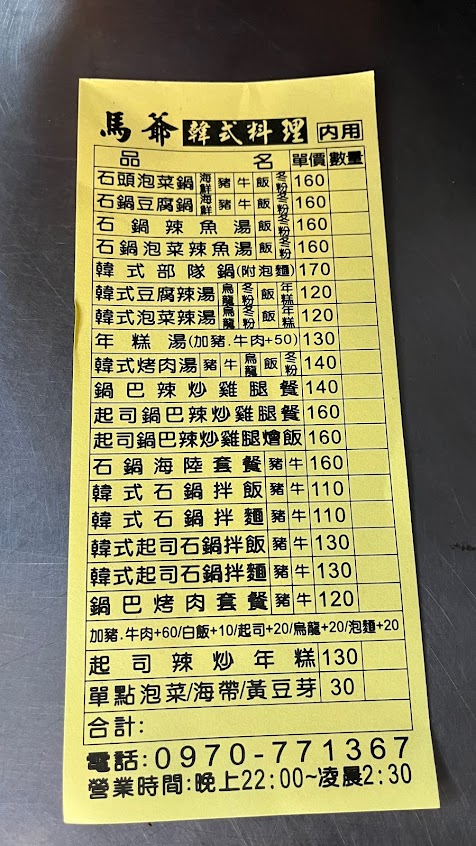 馬爺 韓式料理 內用
品名 單價 數量
石頭泡菜鍋 海鮮 豬 牛 飯 冬粉 160
石鍋豆腐鍋 海鮮 豬 牛 飯 冬粉 160
石鍋辣魚湯 飯 冬粉 160
石鍋泡菜辣魚湯 飯 冬粉 160
韓式部隊鍋(附泡麵) 170
韓式豆腐辣湯 烏龍 冬粉 飯 年糕 120
韓式泡菜辣湯 烏龍 冬粉 飯 年糕 120
年糕湯(加豬.牛肉+50) 130
韓式烤肉湯 豬 牛 烏龍 飯 冬粉 140
鍋巴辣炒雞腿餐 140
起司鍋巴辣炒雞腿餐 160
起司鍋巴辣炒雞腿燴飯 160
石鍋海陸套餐 豬 牛 160
韓式石鍋拌飯 豬 牛 110
韓式石鍋拌麵 豬 牛 110
韓式起司石鍋拌飯 豬 牛 130
韓式起司石鍋拌麵 豬 牛 130
鍋巴烤肉套餐 豬 牛 120
加豬.牛肉+60/白飯+10/起司+20/烏龍+20/泡麵+20
起司辣炒年糕 130
單點泡菜/海帶/黃豆芽 30
合計:
電話:0970-771367
營業時間:晚上22:00~凌晨2:30